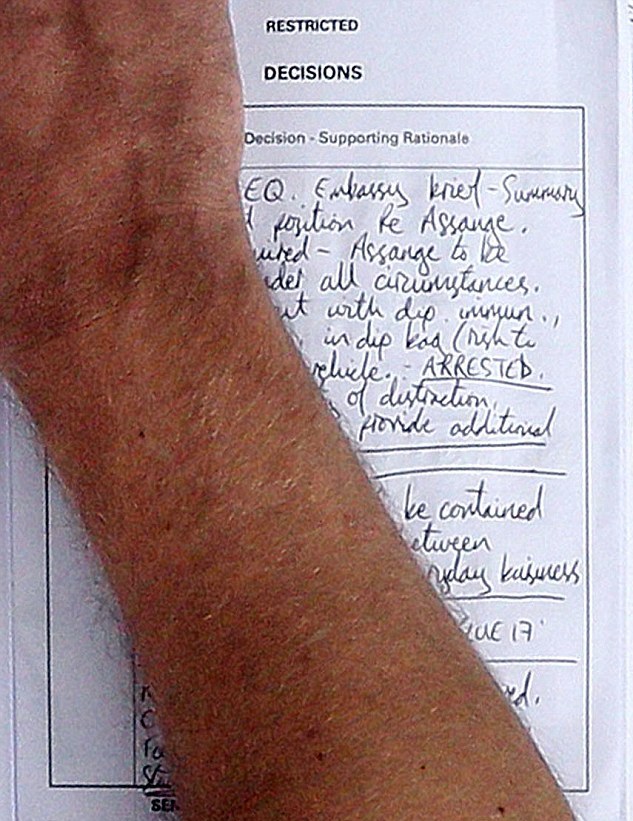 RESTRICTED
DECISIONS
Decision - Supporting Rationale
EQ. Embassy brief - Summary
position Re Assange.
- Assange to be
all circumstances.
with dip. immun.,
in dip bag (right to
vehicle. - ARRESTED.
of distraction,
provide additional
be contained
business
17'